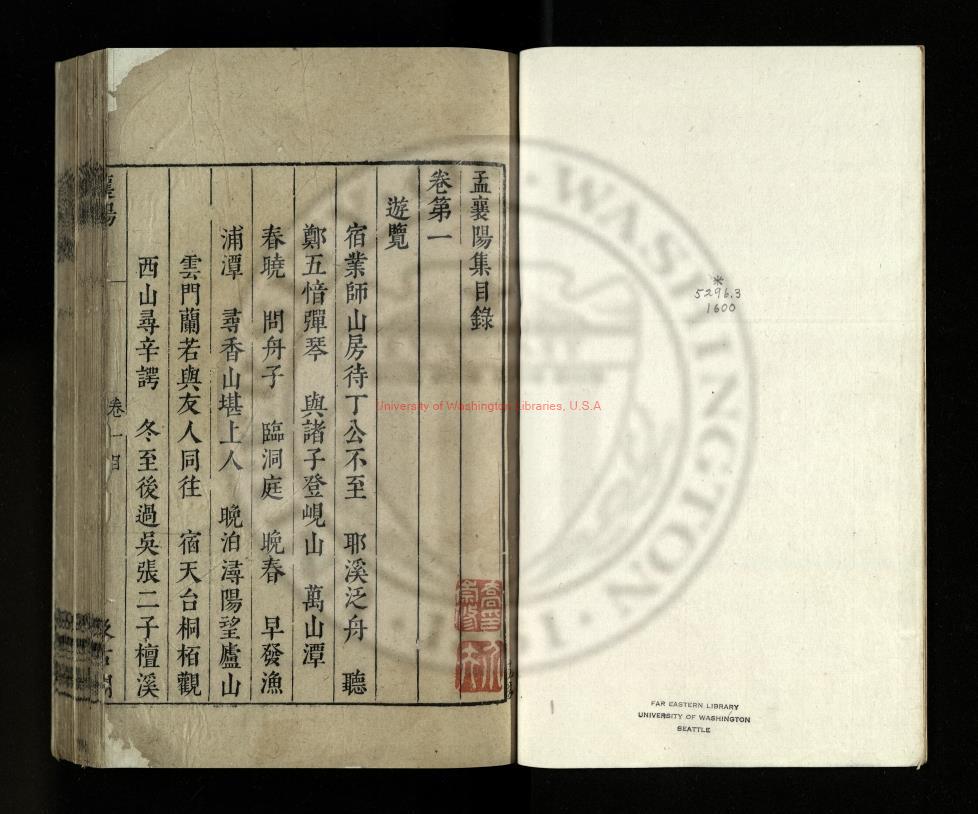 孟襄陽集目錄
卷第一
遊覽
宿業師山房待丁公不至　耶溪泛舟　聽
鄭五愔彈琴　與諸子登峴山　萬山潭
春曉　問舟子　臨洞庭　晚春　早發漁
浦潭　尋香山堪上人　晚泊潯陽望廬山
雲門蘭若與友人同往　宿天台桐栢觀
西山尋辛諤　冬至後過吳張二子檀溪
襄陽
卷一目
5296.3
1600
FAR EASTERN LIBRARY
UNIVERSITY OF WASHINGTON
SEATTLE
University of Washington Libraries, U.S.A
WASHINGTON